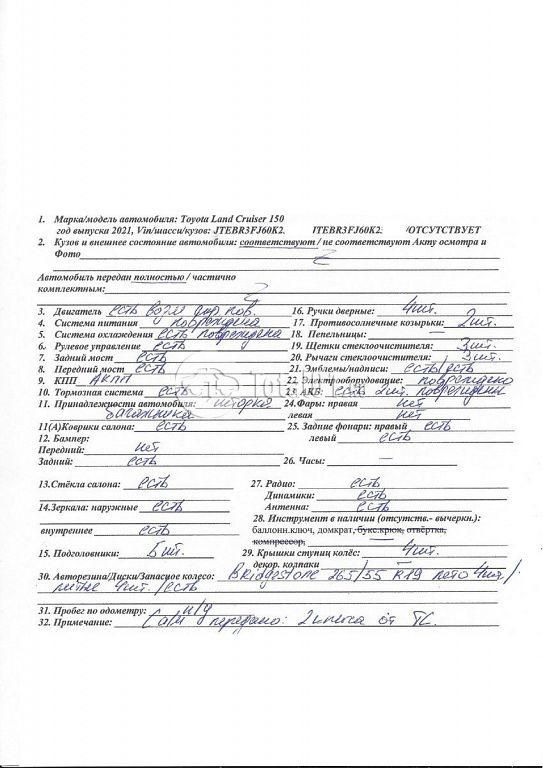 1. Марка/модель автомобиля: Toyota Land Cruiser 150
год выпуска 2021, Vin/шасси/кузов: JTEBR3FJ60K2 JTEBR3FJ60K2 /ОТСУТСТВУЕТ
2. Кузов и внешнее состояние автомобиля: соответствуют / не соответствуют Акту осмотра и
Фото
Автомобиль передан полностью / частично
комплектным:
3. Двигатель есть возм дир пов. 16. Ручки дверные: 4шт.
4. Система питания повреждена 17. Противосолнечные козырьки: 2 шт.
5. Система охлаждения есть повреждена 18. Пепельницы: —
6. Рулевое управление есть 19. Щетки стеклоочистителя: 3 шт.
7. Задний мост есть 20. Рычаги стеклоочистителя: 3 шт.
8. Передний мост есть 21. Эмблемы/надписи: есть/есть
9. КПП АКПП 22. Электрооборудование: повреждено
10. Тормозная система есть 23. АКБ: есть 2шт. повреждены
11. Принадлежности автомобиля: шторка 24. Фары: правая нет
багажника левая нет
11(А)Коврики салона: есть 25. Задние фонари: правый есть
12. Бампер: левый есть
Передний: нет
Задний: есть 26. Часы: —
13. Стёкла салона: есть 27. Радио: есть
Динамики: есть
14. Зеркала: наружные есть Антенна: есть
28. Инструмент в наличии (отсутств.- вычеркн.):
внутреннее есть баллонн.ключ, домкрат, букс.крюк, отвёртка,
компрессор,
15. Подголовники: 5 шт. 29. Крышки ступиц колёс: 4шт.
декор. колпаки —
30. Авторезина/Диски/Запасное колесо: Bridgestone 265/55 R19 лето 4шт/
литые 4шт. /есть
31. Пробег по одометру: н/д
32. Примечание: передано: 2 ключа от ТС.